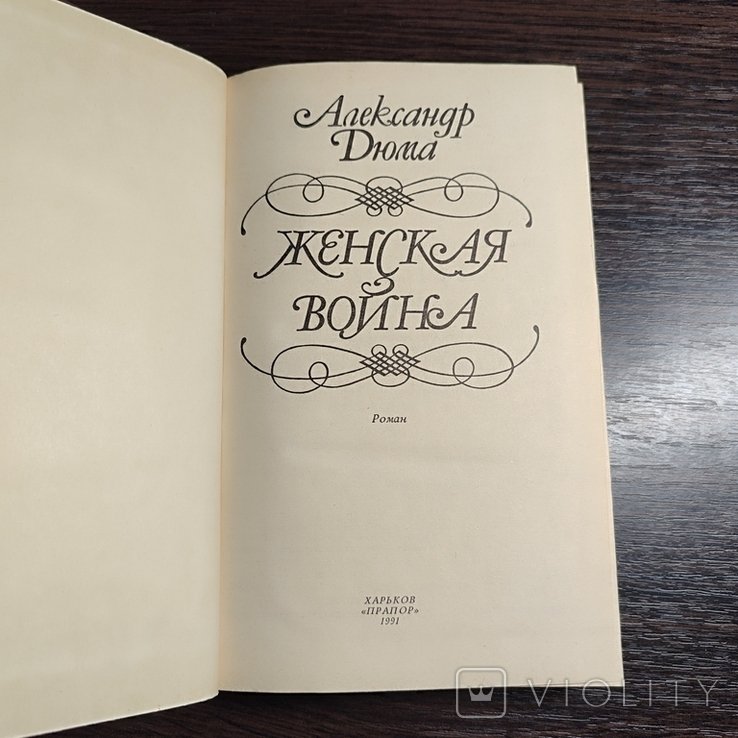 Александр
Дюма
ЖЕНСКАЯ
ВОЙНА
Роман
ХАРЬКОВ
«ПРАПОР»
1991
VIOLITY